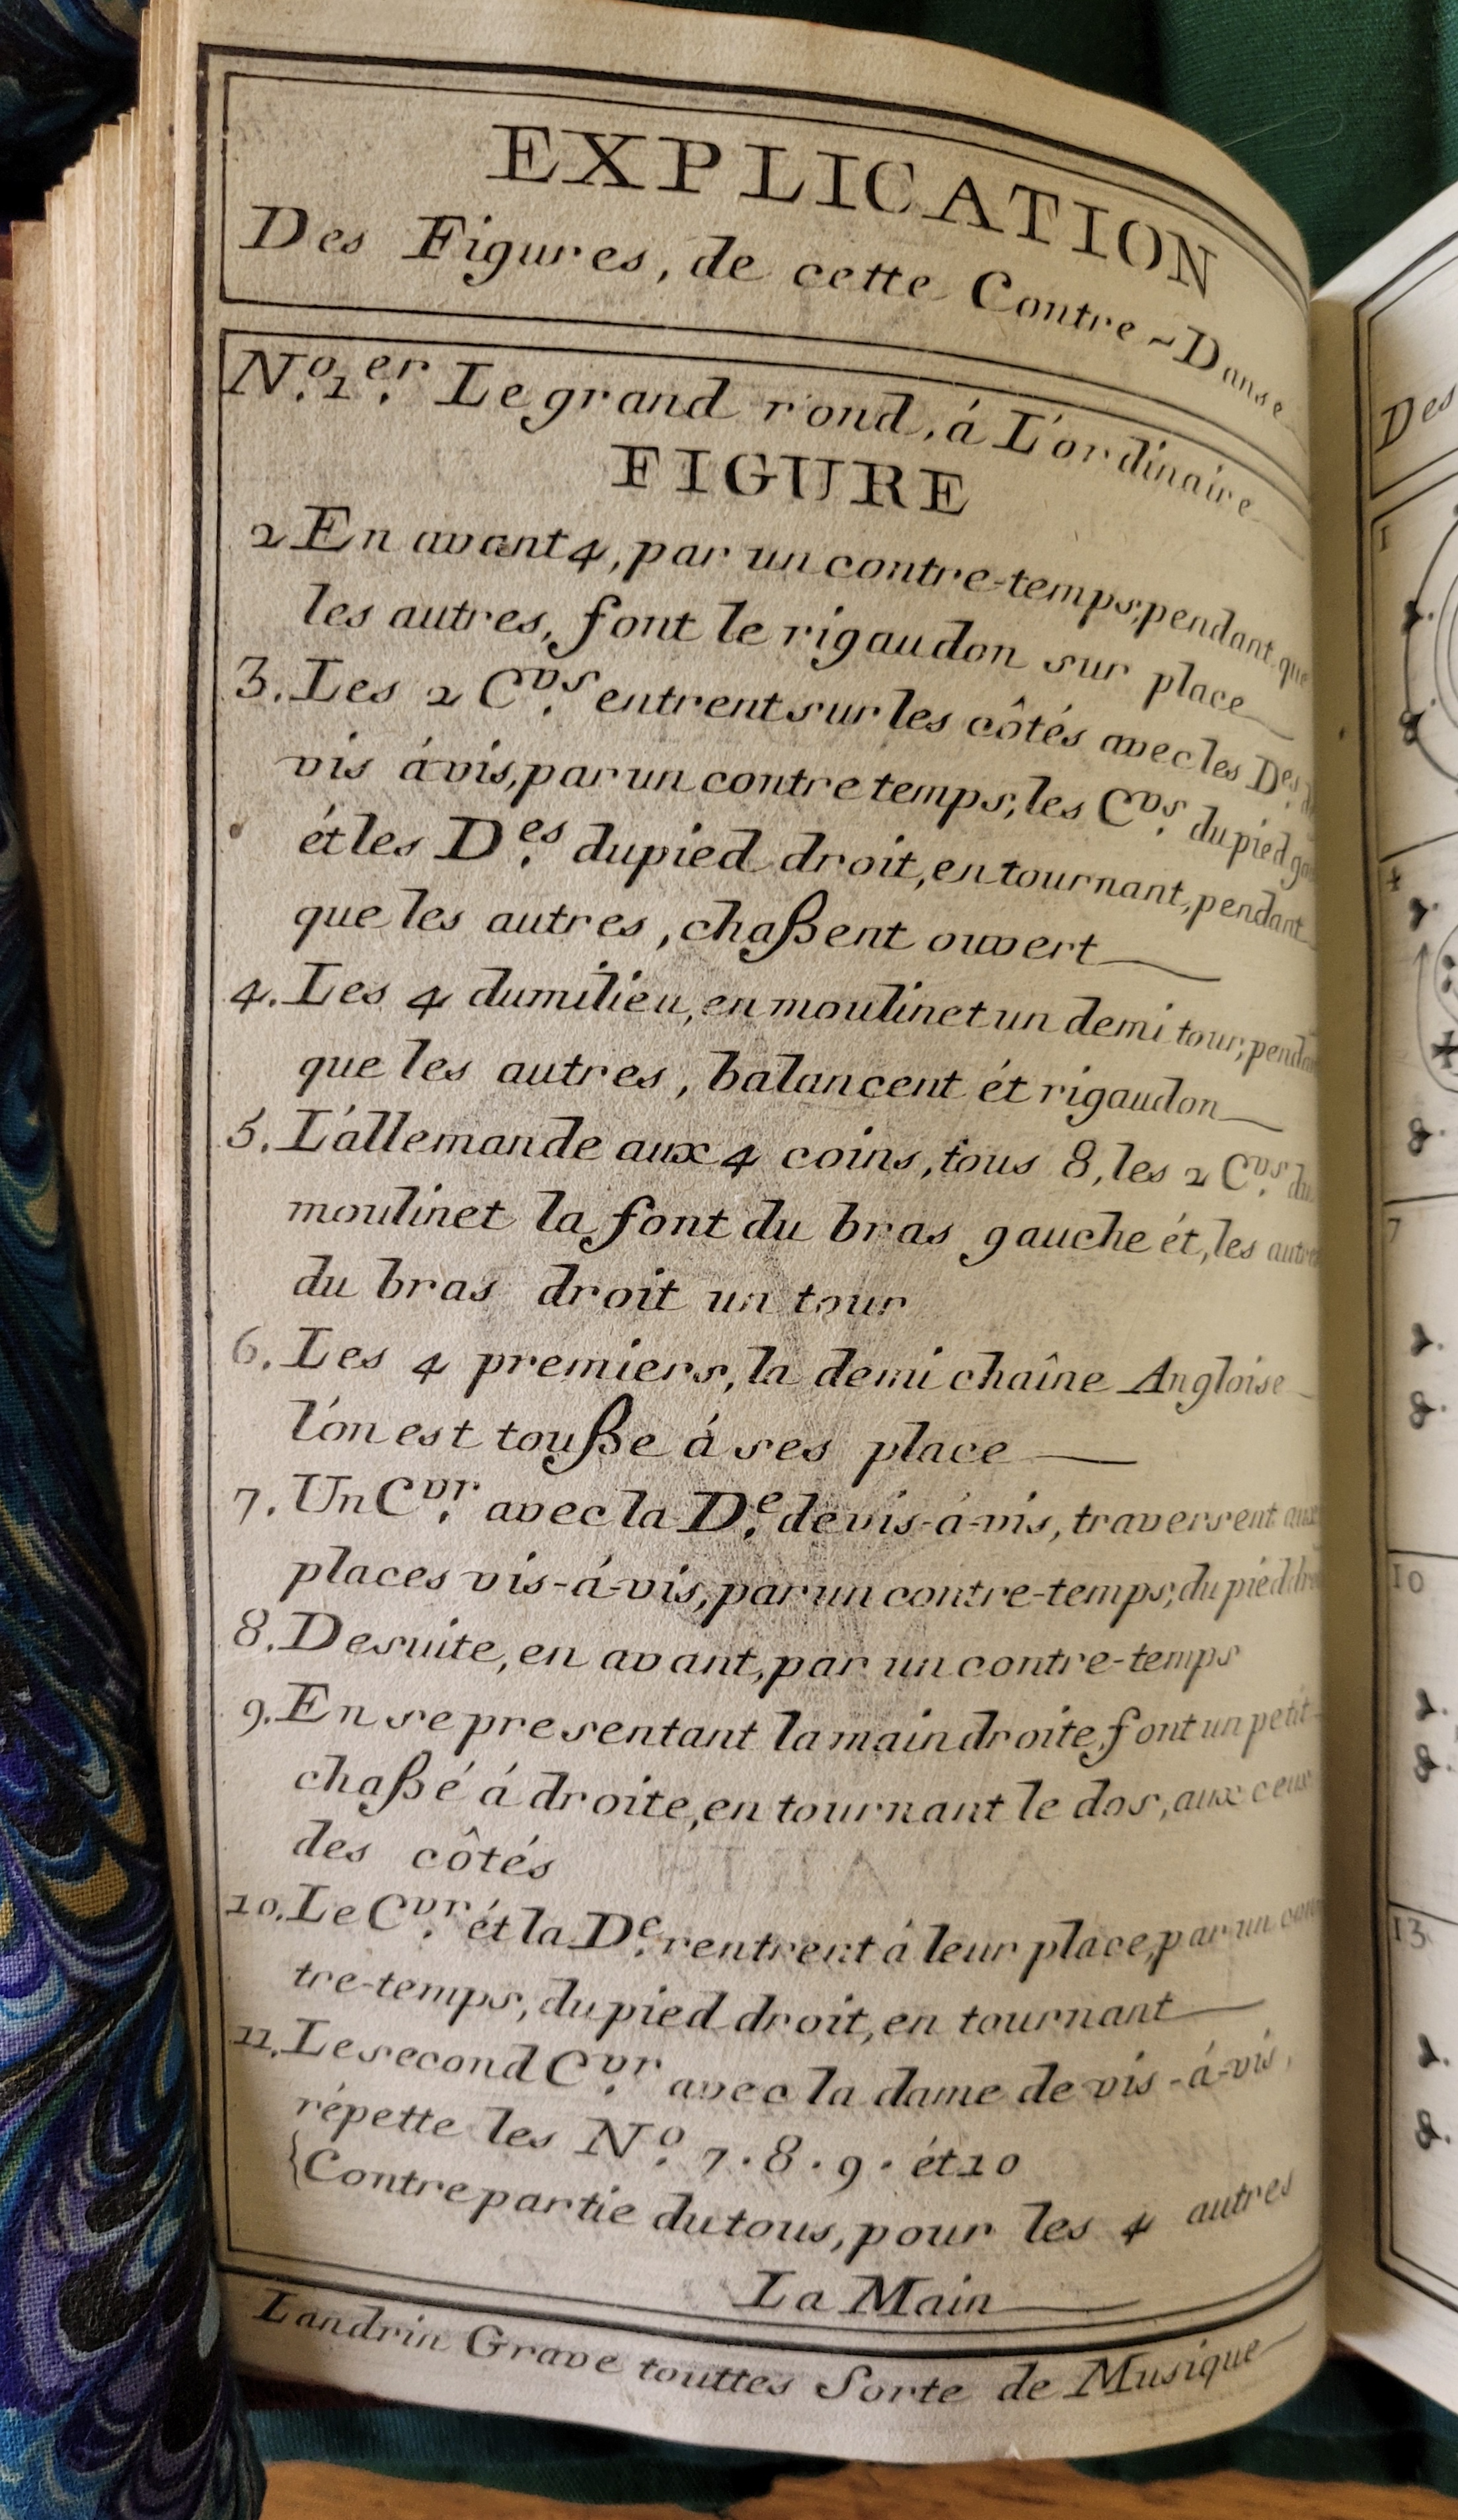 EXPLICATION
Des Figures, de cette Contre-Danse
N.º 1.er Le grand rond, á L'ordinaire
FIGURE
2 En avant 4, par un contre-temps, pendant que
les autres, font le rigaudon sur place
3. Les 2 C.vs entrent sur les côtés avec les D.es
vis á vis, par un contre temps, les C.vs du pied
ét les D.es du pied droit, en tournant, pendant
que les autres, chaßent ouvert
4. Les 4 du milieu, en moulinet un demi tour,
que les autres, balancent ét rigaudon
5. L'állemande aux 4 coins, tous 8, les 2 C.vs du
moulinet la font du bras gauche ét, les autres
du bras droit un tour
6. Les 4 premiers, la demi chaîne Angloise
l'ón est toußе á ses place
7. Un C.vr avec la D.e de vis-á-vis, traversent aux
places vis-á-vis, par un contre-temps, du pied
8. De suite, en avant, par un contre-temps
9. En se presentant la main droite, font un petit
chaßé á droite, en tournant le dos, aux ceux
des côtés
10. Le C.vr ét la D.e rentrent á leur place, par un con
tre-temps, du pied droit, en tournant
11. Le second C.vr avec la dame de vis-á-vis,
répette les N.º 7. 8. 9. ét 10
{Contre partie du tous, pour les 4 autres
La Main
Landrin Grave touttes Sorte de Musique
Des
1
4
7
10
13